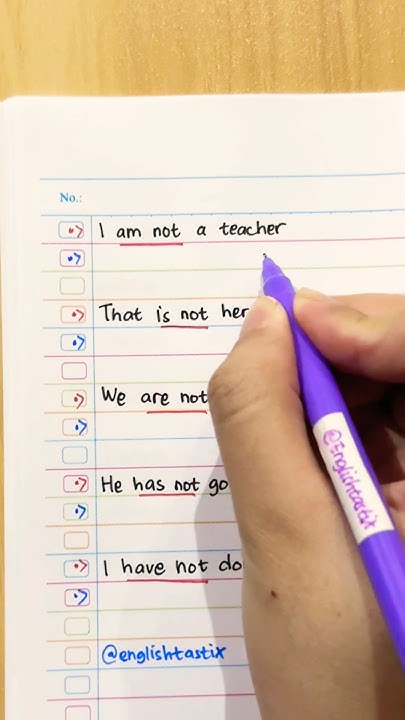 No.:
I am not a teacher
That is not her
We are not
He has not go
I have not do
@englishtastix
@Englishtastix